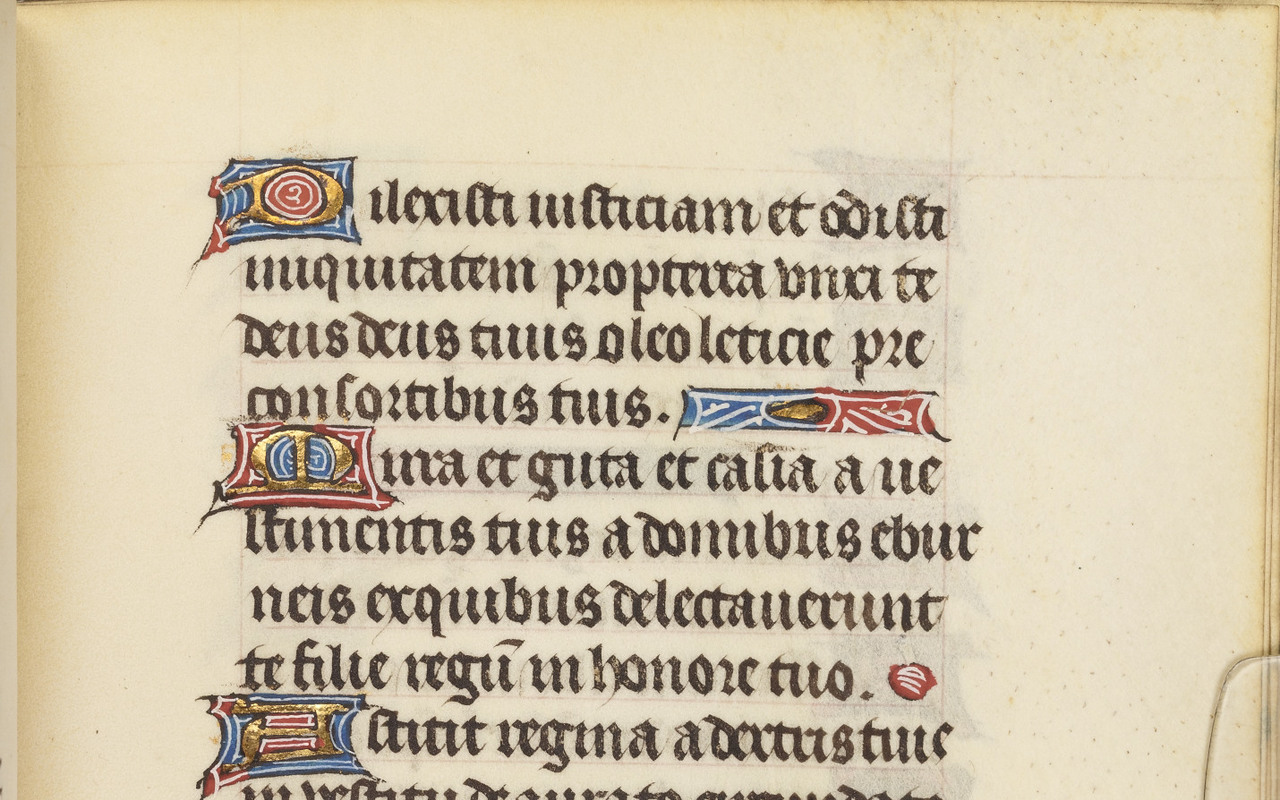 Dilexisti iusticiam et odisti
iniquitatem propterea vnxi te
deus deus tuus oleo leticie pre
consortibus tuis.
Mirra et guta et casia a ue
stimentis tuis a domibus ebur
neis exquibus delectauerunt
te filie regū in honore tuo.
Astitit regina a dextris tuis
in vestitu deaurato